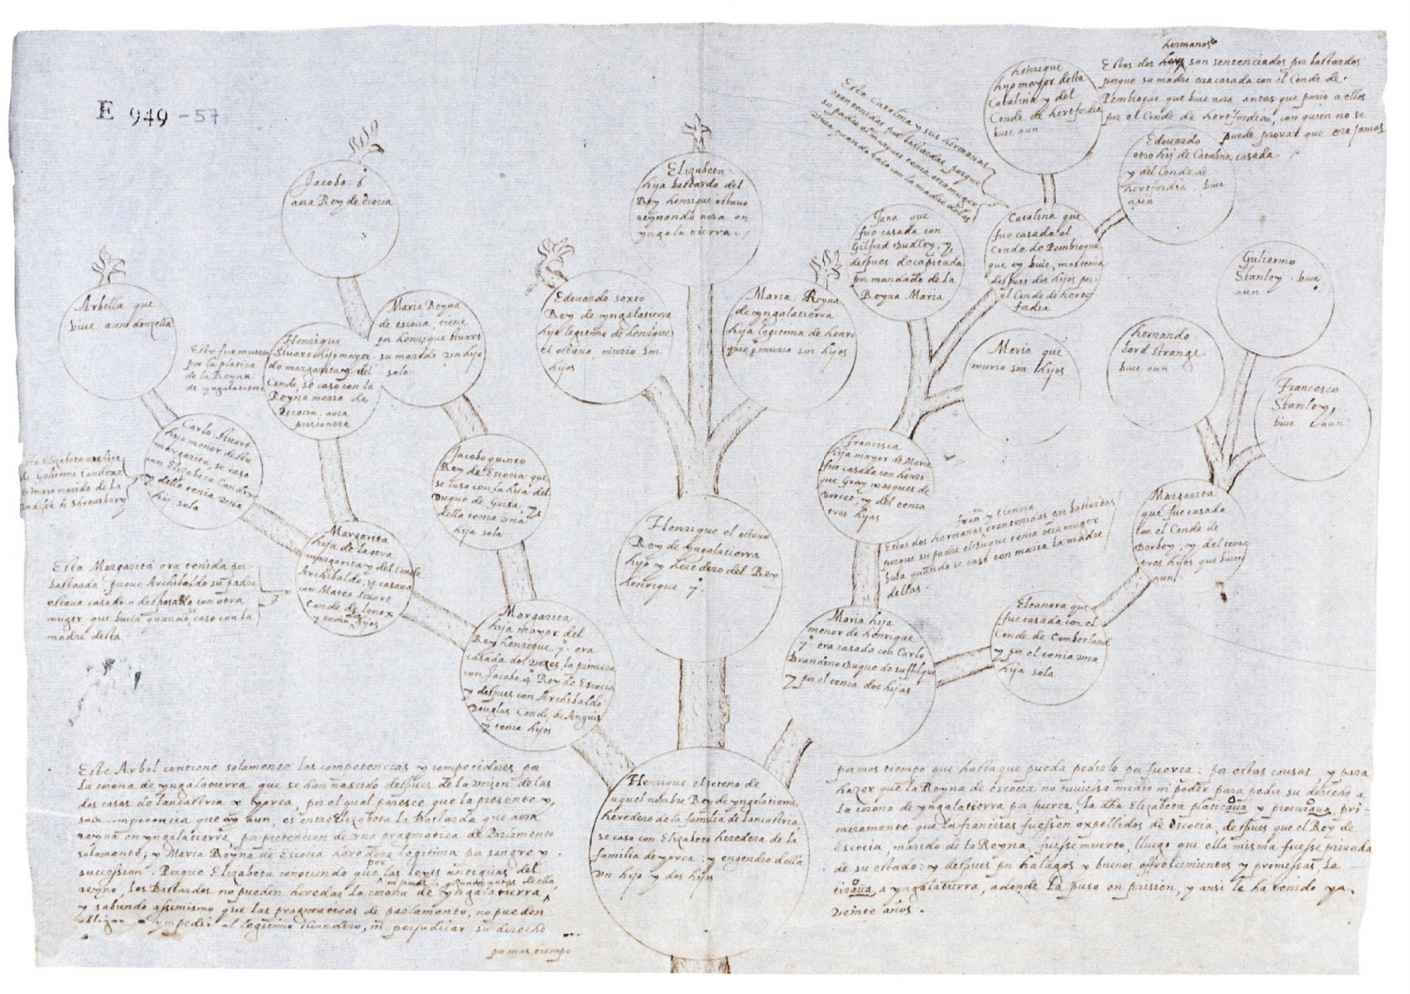 E 949-57
hermanos
Estos dos son sentenciados por bastardos
porque su madre era casada con el Conde de
Pembroque que bive aora, antes que pario a ellos
por el Conde de hertfordia, con quien no se
puede provar que era jamas
casada
henrique
hijo mayor della
Catalina y del
Conde de hertfordia
bive aun
Eduardo
otro hijo de Catalina
y del Conde de
hertfordia bive
aun
Esta Catalina y sus hermanas
eran tenidas por bastardas porque
su padre el marques tenia otra muger
viva quando caso con la madre dellas
Jacobo 6
aora Rey de escocia
Elizabeta
hija bastarda del
Rey henrique octavo
reynando aora en
yngalatierra.
Jana que
fue casada con
Gilford Dudley, y
despues decapitada
por mandado de la
Reyna Maria
Catalina que
fue casada al
Conde de Pembroque
que oy bive, mas tenia
despues dos hijos por
el Conde de hertfordia
Guliermo
Stanley bive
aun
Arbella que
bive aora donzella
Maria Reyna
de escocia, tiene
por henrique stuart
su marido un hijo
solo
Eduardo sexto
Rey de yngalatierra
hijo legitimo de henrique
el octavo, murio sin
hijos
Maria Reyna
de yngalatierra
hija legitima de henrique
murio sin hijos
Maria que
murio sin hijos
hernando
lord strange
bive aun
Francesco
Stanley,
bive aun
Este fue muerto
por la platica
de la Reyna
de yngalatierra
Henrique
Stuart hijo mayor
de margarita y del
Conde, se caso con la
Reyna maria de
Escocia, aora
prisionera
Carlo Stuart
hijo menor de
margarita, se caso
con Elizabeta Candis
y della tenia una
hija sola
Jacobo quinto
Rey de Escocia que
se caso con la hija del
Duque de Guisa, y
della tenia una
hija sola
Francisca
hija mayor de Maria
fue casada con henrique
Gray marques de
Dorset, y del tenia
tres hijas
Margarita
que fue casada
con el Conde de
Darbey, y del tenia
tres hijos que biven
aun
Fran. y Eleonora
Estas dos hermanas eran tenidas por bastardas
porque su padre el duque tenia otra muger
biva quando se caso con maria la madre
dellas.
Margarita
hija de la otra
margarita y del conde
Archibaldo, se casara
con Mateo Stuart
Conde de Lenox
y tenia hijos
Henrique el octavo
Rey de yngalatierra
hijo y heredero del Rey
henrique 7.
Esta Margarita era tenida por
bastarda porque Archibaldo su padre
estava casado o desposado con otra
muger que bivia quando caso con la
madre desta
Margarita
hija mayor del
Rey henrique 7. era
casada dos vezes, la primera
con Jacobo 4. Rey de Escocia
y despues con Archibaldo
Douglas Conde de Anguis
y tenia hijos
Maria hija
menor de henrique
7. era casada con Carlo
Brandono Duque de suffolque
y por el tenia dos hijas
Eleonora que
fue casada con el
Conde de Cumberland
y por el tenia una
hija sola
Henrique el seteno de
aquel nombre Rey de yngalatierra,
heredero de la familia de lancastria
se caso con Elizabeta heredera de la
familia de yorca, y engendro della
un hijo y dos hijas
Este Arbol contiene solamente las competencias y competidores por
la corona de yngalatierra que se han nascido despues de la union de las
dos casas de lancastria y yorca, por el qual parece que la presente y
sola competencia que ay aun, es entre Elizabeta la bastarda que aora
reyna en yngalatierra, por pretension de una pragmatica de Parlamento
solamente, y Maria Reyna de Escocia heredera legitima por sangre y
succession. Porque Elizabeta conociendo que por las leyes antiguas del
reyno, los bastardos no pueden heredar la corona de yngalatierra,
y sabiendo assimismo que las pragmaticas de parlamento, no pueden
obligar o ympedir al legitimo heredero, ni perjudicar su derecho
por mas tiempo
por mas tiempo que hasta que pueda pedirlo por fuerca: por estas causas, y para
hazer que la Reyna de escocia no tuviesse medio ni poder para pedir su derecho a
la corona de yngalatierra por fuerca, la dha Elizabeta platicava y procurava pri-
meramente que los franceses fuessen expellidos de Escocia, despues que el Rey de
Escocia, marido de la Reyna, fuesse muerto, luego que ella misma fuesse privada
de su estado: y despues por halagos y buenos offrecimientos y promessas, la
a yngalatierra, adonde la puso en prission, y ansi le ha tenido ya.
veinte años.